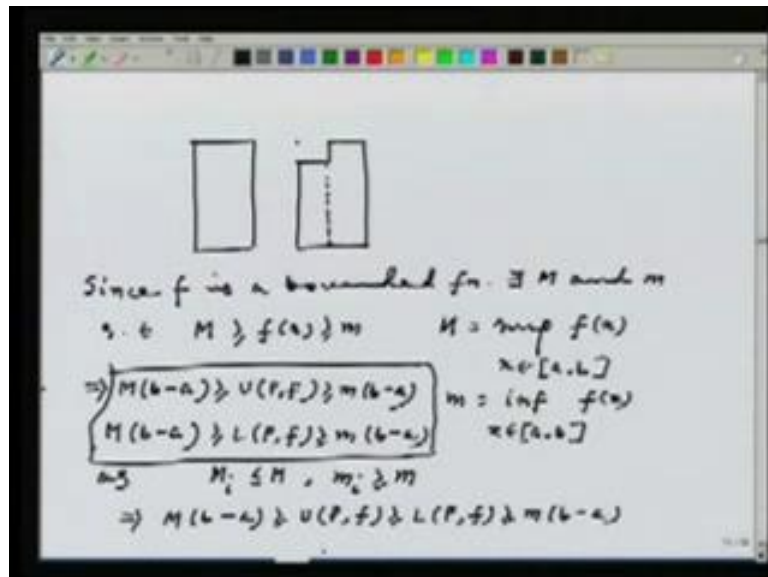 Since f is a bounded fn. ∃ M and m
s.t M ≥ f(x) ≥ m M = sup f(x)
x∈[a,b]
⇒ M(b-a) ≥ U(P,f) ≥ m(b-a) m = inf f(x)
M(b-a) ≥ L(P,f) ≥ m(b-a) x∈[a,b]
as M_i ≤ M, m_i ≥ m
⇒ M(b-a) ≥ U(P,f) ≥ L(P,f) ≥ m(b-a)